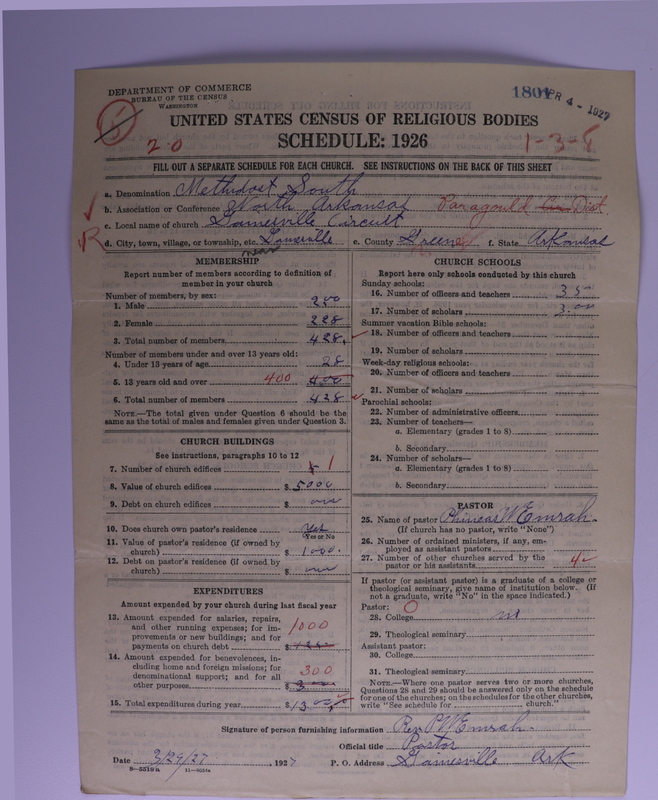 DEPARTMENT OF COMMERCE
BUREAU OF THE CENSUS
WASHINGTON
1801 APR 4 - 1927
UNITED STATES CENSUS OF RELIGIOUS BODIES
2.0 SCHEDULE: 1926 1-3-8
FILL OUT A SEPARATE SCHEDULE FOR EACH CHURCH. SEE INSTRUCTIONS ON THE BACK OF THIS SHEET
a. Denomination Methodist South
b. Association or Conference North Arkansas Paragould Dist
c. Local name of church Gainesville Circuit
d. City, town, village, or township, etc. near Gainesville e. County Greene f. State Arkansas
MEMBERSHIP
Report number of members according to definition of
member in your church
Number of members, by sex:
1. Male 200
2. Female 228
3. Total number of members 428
Number of members under and over 13 years old:
4. Under 13 years of age 28
5. 13 years old and over 400 400
6. Total number of members 428
NOTE.—The total given under Question 6 should be the
same as the total of males and females given under Question 3.
CHURCH BUILDINGS
See instructions, paragraphs 10 to 12
7. Number of church edifices 1
8. Value of church edifices $ 5000
9. Debt on church edifices $
10. Does church own pastor's residence Yes
Yes or No
11. Value of pastor's residence (if owned by
church) $ 1000.
12. Debt on pastor's residence (if owned by
church) $
EXPENDITURES
Amount expended by your church during last fiscal year
13. Amount expended for salaries, repairs,
and other running expenses; for im-
provements or new buildings; and for
payments on church debt $ 1000
14. Amount expended for benevolences, in-
cluding home and foreign missions; for
denominational support; and for all
other purposes $ 300
15. Total expenditures during year $ 1300
CHURCH SCHOOLS
Report here only schools conducted by this church
Sunday schools:
16. Number of officers and teachers
17. Number of scholars
Summer vacation Bible schools:
18. Number of officers and teachers
19. Number of scholars
Week-day religious schools:
20. Number of officers and teachers
21. Number of scholars
Parochial schools:
22. Number of administrative officers
23. Number of teachers—
a. Elementary (grades 1 to 8)
b. Secondary
24. Number of scholars—
a. Elementary (grades 1 to 8)
b. Secondary
PASTOR
25. Name of pastor Phineas W Emrah
(If church has no pastor, write "None")
26. Number of ordained ministers, if any, em-
ployed as assistant pastors
27. Number of other churches served by the
pastor or his assistants 4
If pastor (or assistant pastor) is a graduate of a college or
theological seminary, give name of institution below. (If
not a graduate, write "No" in the space indicated.)
Pastor: O
28. College no
29. Theological seminary
Assistant pastor:
30. College
31. Theological seminary
NOTE.—Where one pastor serves two or more churches,
Questions 28 and 29 should be answered only on the schedule
for one of the churches; on the schedules for the other churches,
write "See schedule for church."
Signature of person furnishing information Rev P W Emrah
Official title Pastor
Date 3/29/27, 1927 P. O. Address Gainesville Ark
8-5219a 11-9024a